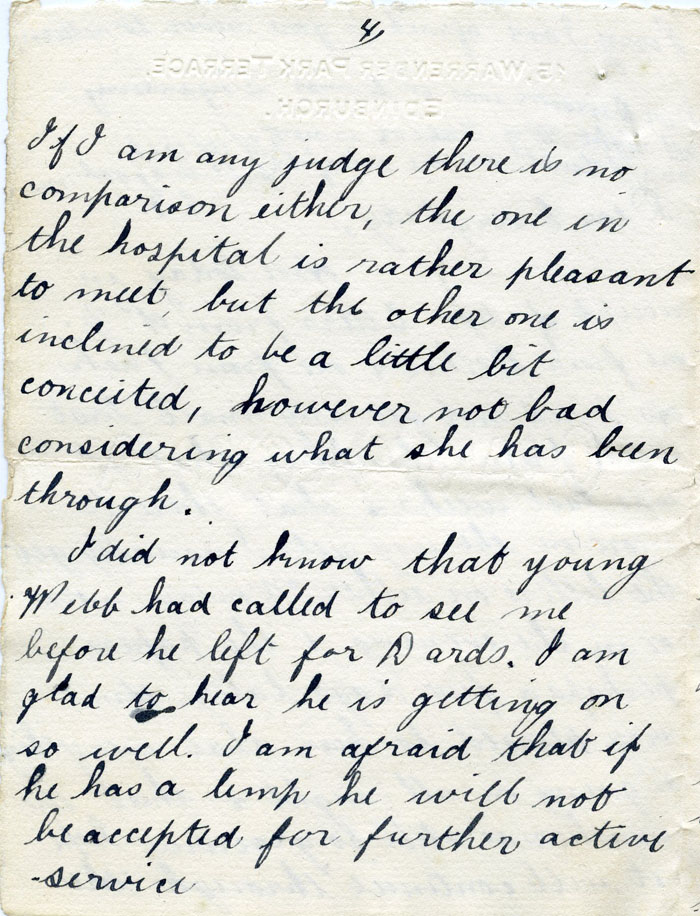 4,
15, WARRENDER PARK TERRACE,
EDINBURGH.
If I am any judge there is no
comparison either, the one in
the hospital is rather pleasant
to meet, but the other one is
inclined to be a little bit
conceited, however not bad
considering what she has been
through.
I did not know that young
Webb had called to see me
before he left for Dards. I am
glad to hear he is getting on
so well. I am afraid that if
he has a limp he will not
be accepted for further active
-service